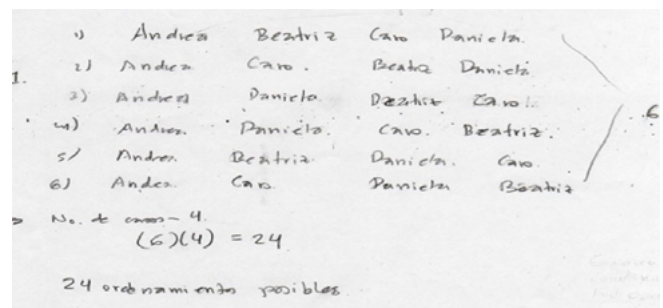 1) Andrea Beatriz Caro Daniela.
1. 2) Andrea Caro. Beatriz Daniela
3) Andrea Daniela Beatriz Caro.
4) Andrea. Daniela. Caro. Beatriz. 6
5) Andrea. Beatriz. Daniela. Caro
6) Andrea. Caro Daniela Beatriz
No. de casos - 4.
(6)(4) = 24
24 ordenamientos posibles.